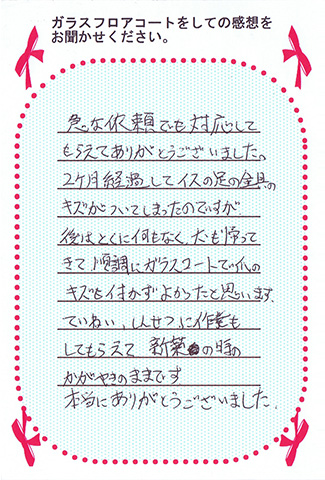 ガラスフロアコートをしての感想を
お聞かせください。
急な依頼でも対応して
もらえてありがとうございました。
2ケ月経過してイスの足の金具の
キズがついてしまったのですが
後はとくに何もなく、犬も帰って
きて順調にガラスコートで爪の
キズも付かずよかったと思います
ていねい、しんせつに作業も
してもらえて 新築の時の
かがやきのままです
本当にありがとうございました。